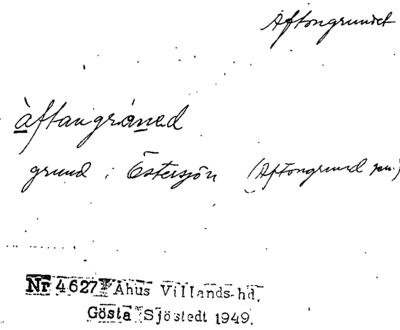 Aftongrundet
àftangráned
grund i Östersjön (Aftongrund
Nr 4627 Åhus Villands hd.
Gösta Sjöstedt 1949.